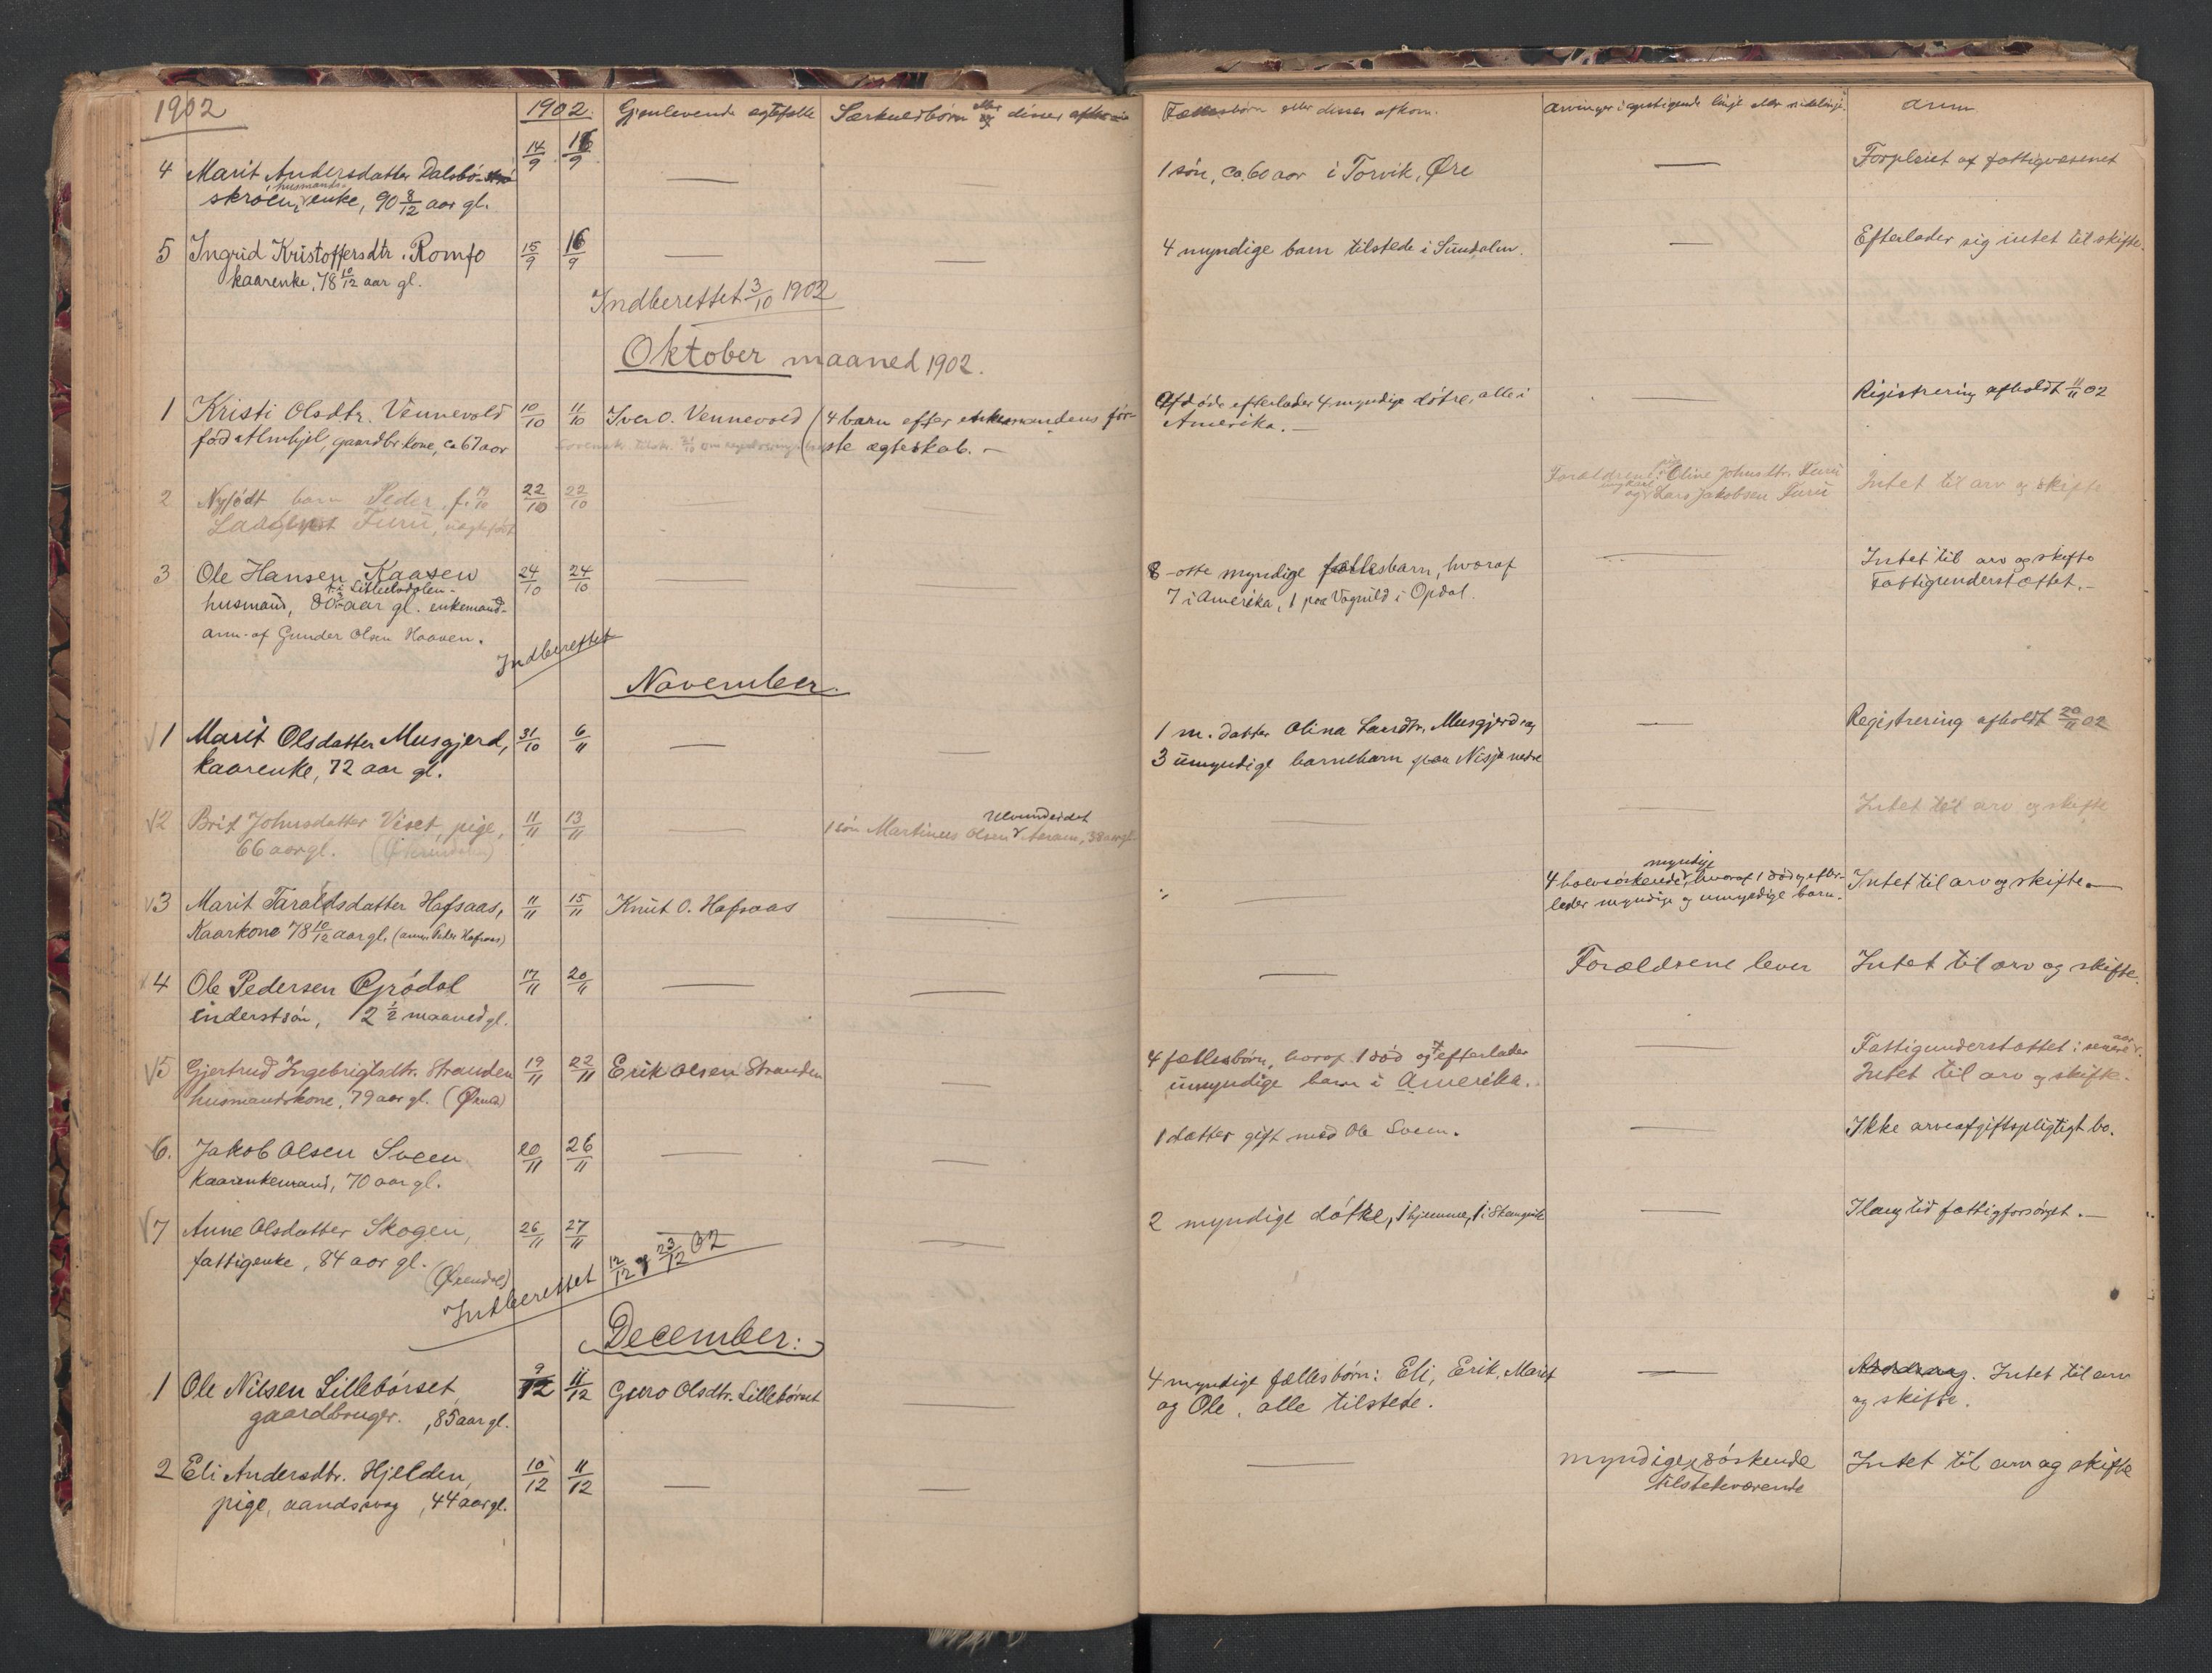 1902
1902. Gjenlevende egtefolk Særkuldbørn eller disses afkom Fællesbørn eller disses afkom. Arvinger i opstigende linje eller sidelinje. anm
4 Marit Andersdatter Dalsbø- 14/9 16/9 — 1 søn, ca. 60 aar i Torvik, Øre — Forpleiet af fattigvæsenet
skrøen, husmands enke, 90 8/12 aar gl.
5 Ingrid Kristoffersdtr. Romfo 15/9 16/9 — — 4 myndige barn tilstede i Sundalen. — Efterlader sig intet til skifte.
kaarenke, 78 10/12 aar gl.
Indberettet 3/10 1902
Oktober maaned 1902.
1 Kristi Olsdtr. Vennevold 10/10 11/10 Iver O. Vennevold (4 barn efter enkemandens før- Afdøde efterlader 4 myndige døtre, alle i Registrering afholdt 11/11 02
fød Almhjel, gaardbr. kone, ca 67 aar ste ægteskab. — Amerika. —
2 Nyfødt barn Peder f. 22/10 22/10 — — Forældrene: pige Oline Johnsdtr. Furu Intet til arv og skifte
Furu, uægtefødt og Lars Jakobsen Furu
3 Ole Hansen Kaasen 24/10 24/10 8 – otte myndige fællesbarn, hvoraf — Intet til arv og skifte
husmand, 80 aar gl. enkemand- 7 i Amerika, 1 paa Vognild i Opdal. Fattigunderstøttet. —
anm. af Gunder Olsen Haaven.
Indberettet
November.
1 Marit Olsdatter Musgjerd, 31/10 6/11 — — 1 m. datter Olina Larsdtr. Musgjerd og — Registrering afholdt 20/11 02
kaarenke, 72 aar gl. 3 umyndige barnebarn paa Nisja nedre
2 Brit Johnsdatter Viset, pige, 11/11 13/11 — 1 søn Martinus Olsen Ulvundeidet 38 aar gl. — — Intet til arv og skifte
66 aar gl.
3 Marit Taraldsdatter Hafsaas, 11/11 15/11 Knut O. Hafsaas — — 4 halvsøskende myndige, hvoraf 1 død og efter- Intet til arv og skifte. —
Kaarkone 78 10/12 aar gl. (anm. Peder Hafsaas) lader myndige og umyndige barn.
4 Ole Pedersen Grødal 17/11 20/11 — — — Forældrene lever Intet til arv og skifte.
inderstsøn, 2 1/2 maaned gl.
5 Gjertrud Ingebrigtsdtr. Stranden 19/11 22/11 Erik Olsen Stranden — 4 fællesbørn, hvoraf 1 død og efterlader — Fattigunderstøttet i senere aar.
husmandskone, 79 aar gl. umyndige barn i Amerika. Intet til arv og skifte.
6. Jakob Olsen Sveen 20/11 26/11 — — 1 datter gift med Ole Sveen. — Ikke arveafgiftspligtigt bo.
Kaarenkemand, 70 aar gl.
7 Anne Olsdatter Skogen, 26/11 27/11 — — 2 myndige døtre, 1 hjemme, 1 i Stangvik — I lang tid fattigforsørget. —
fattigenke, 84 aar gl.
(Øxendal)
Indberettet 12/12 & 23/12 02
December:
1 Ole Nilsen Lillebørset 9/12 11/12 Guro Olsdtr. Lillebørset — 4 myndige fællesbørn: Eli, Erik, Marit — Intet til arv
gaardbruger. , 85 aar gl. og Ole, alle tilstede. og skifte.
2 Eli Andersdtr. Hjelden, 10/12 11/12 — — — myndige søskende Intet til arv og skifte
pige, aandssvag, 44 aar gl. tilstedeværende